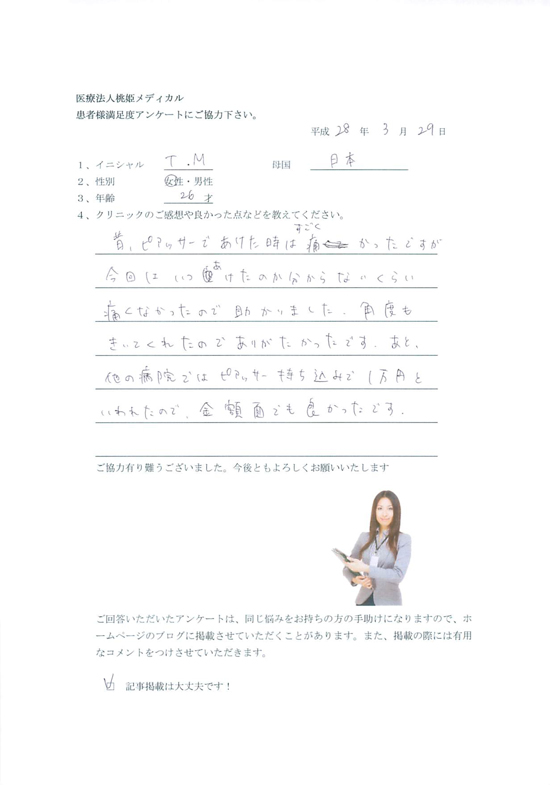 医療法人桃姫メディカル
患者様満足度アンケートにご協力下さい。
平成 28 年 3 月 29 日
1、イニシャル T.M 母国 日本
2、性別 女性・男性
3、年齢 26才
4、クリニックのご感想や良かった点などを教えてください。
すごく
昔、ピアッサーであけた時は痛かったですが
あ
今回はいつけたのか分からないくらい
痛くなかったので助かりました。角度も
きいてくれたのでありがたかったです。あと、
他の病院ではピアッサー持ち込みで1万円と
いわれたので、金額面でも良かったです。
ご協力有り難うございました。今後ともよろしくお願いいたします
ご回答いただいたアンケートは、同じ悩みをお持ちの方の手助けになりますので、ホ
ームページのブログに掲載させていただくことがあります。また、掲載の際には有用
なコメントをつけさせていただきます。
記事掲載は大丈夫です！